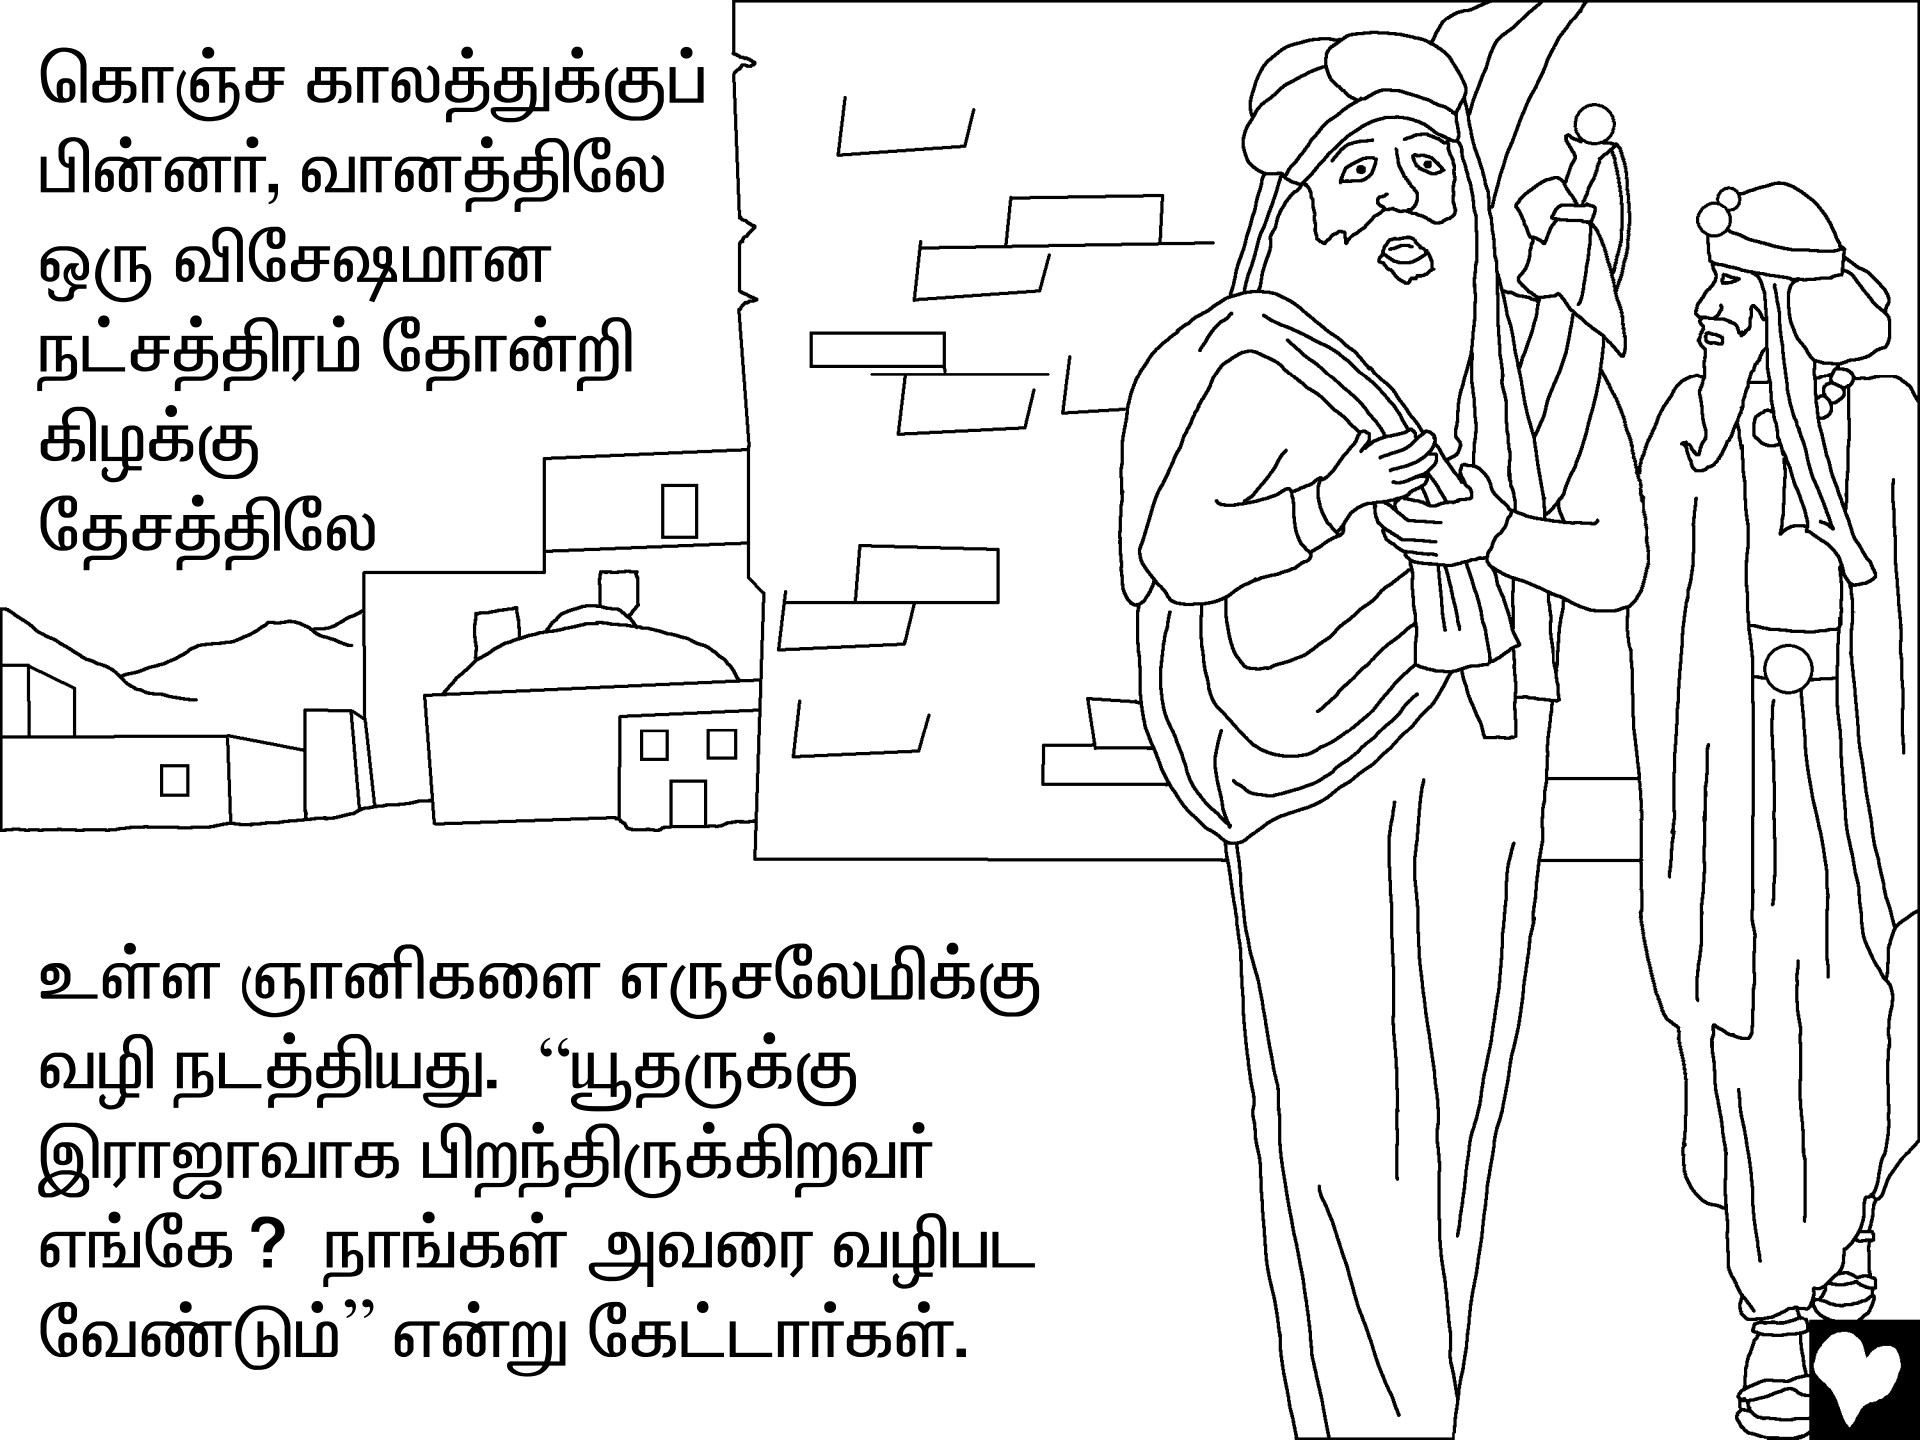 கொஞ்ச காலத்துக்குப்
பின்னர், வானத்திலே
ஒரு விசேஷமான
நட்சத்திரம் தோன்றி
கிழக்கு
தேசத்திலே
உள்ள ஞானிகளை எருசலேமிக்கு
வழி நடத்தியது. “யூதருக்கு
இராஜாவாக பிறந்திருக்கிறவர்
எங்கே ? நாங்கள் அவரை வழிபட
வேண்டும்” என்று கேட்டார்கள்.